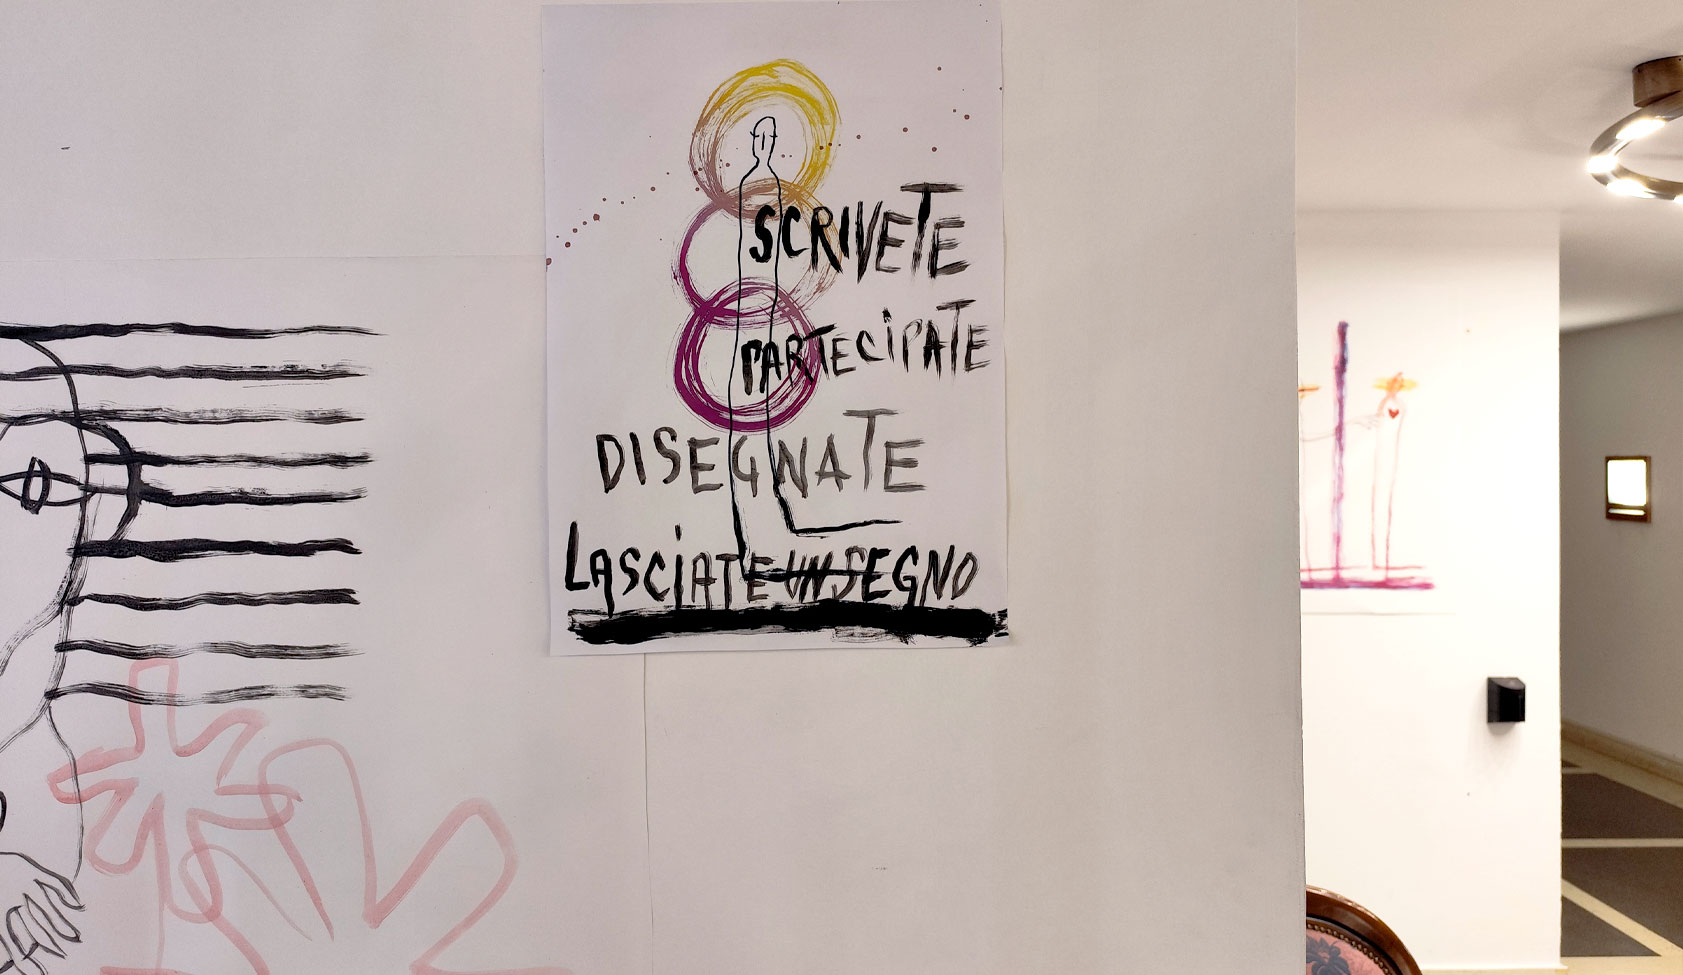 SCRIVETE
PARTECIPATE
DISEGNATE
LASCIATE UN SEGNO